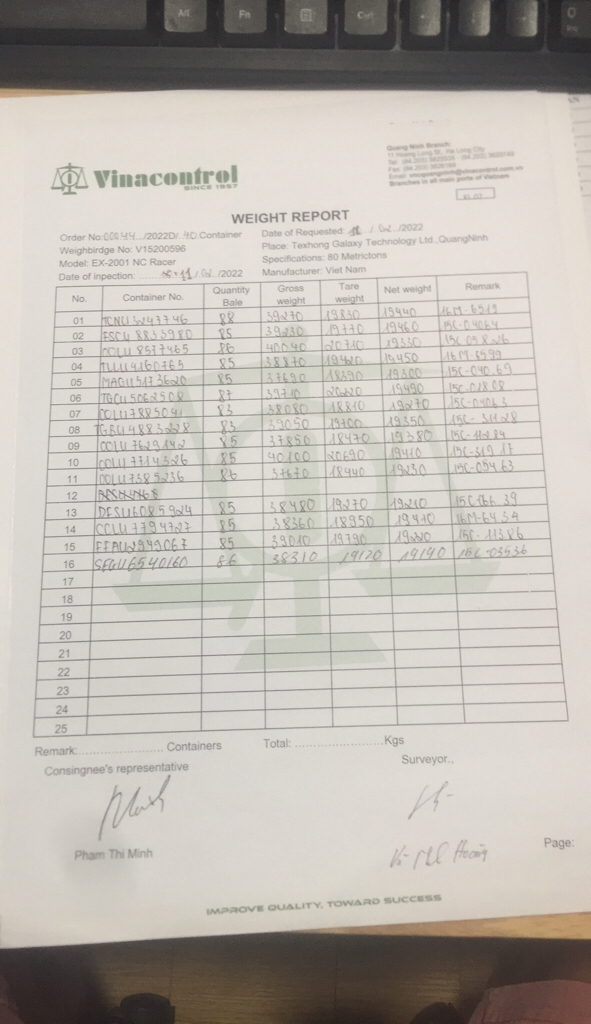 Alt Fn Ctrl
Vinacontrol
SINCE 1957
Quang Ninh Branch:
Branches in all main ports of Vietnam
WEIGHT REPORT
Order No: /2022D/ 40 Container
Date of Requested: /02 /2022
Weighbirdge No: V15200596
Place: Texhong Galaxy Technology Ltd.,QuangNinh
Model: EX-2001 NC Racer
Specifications: 80 Metrictons
Date of inpection: /02 /2022
Manufacturer: Viet Nam
No. Container No. Quantity Bale Gross weight Tare weight Net weight Remark
01 TCNU 88 39270 19830 19440 16M-6519
02 FSCU 8833980 85 39230 19770 19460 15C-04064
03 CCLU 8577465 86 40040 20710 19330 15C
04 TLLU4160765 85 38870 19420 19450 16M-6599
05 MAGU5173620 85 37690 18390 19300 15C-040.69
06 TGCU5062508 87 39710 20220 19490 15C-018.08
07 CCLU7885041 83 38080 18810 19270 15C-04063
08 TGBU4883228 83 39050 19700 19350 15C-311.28
09 CCLU7629142 85 37850 18470 19380 15C-112.84
10 CCLU7714326 85 40100 20690 19410 15C-319.17
11 CCLU7385236 86 37670 18440 19230 15C-054.63
12
13 DFSU6085924 85 38480 19270 19210 15C166.39
14 CCLU7794727 85 38360 18950 19410 16M-64.34
15 FFAU2949067 85 39010 19790 19220 15C-113.86
16 SEGU6540160 86 38310 19120 19190 15C-03536
17
18
19
20
21
22
23
24
25
Remark: Containers Total: Kgs
Consingnee's representative Surveyor.,
Pham Thi Minh
Hoàng
Page:
IMPROVE QUALITY, TOWARD SUCCESS